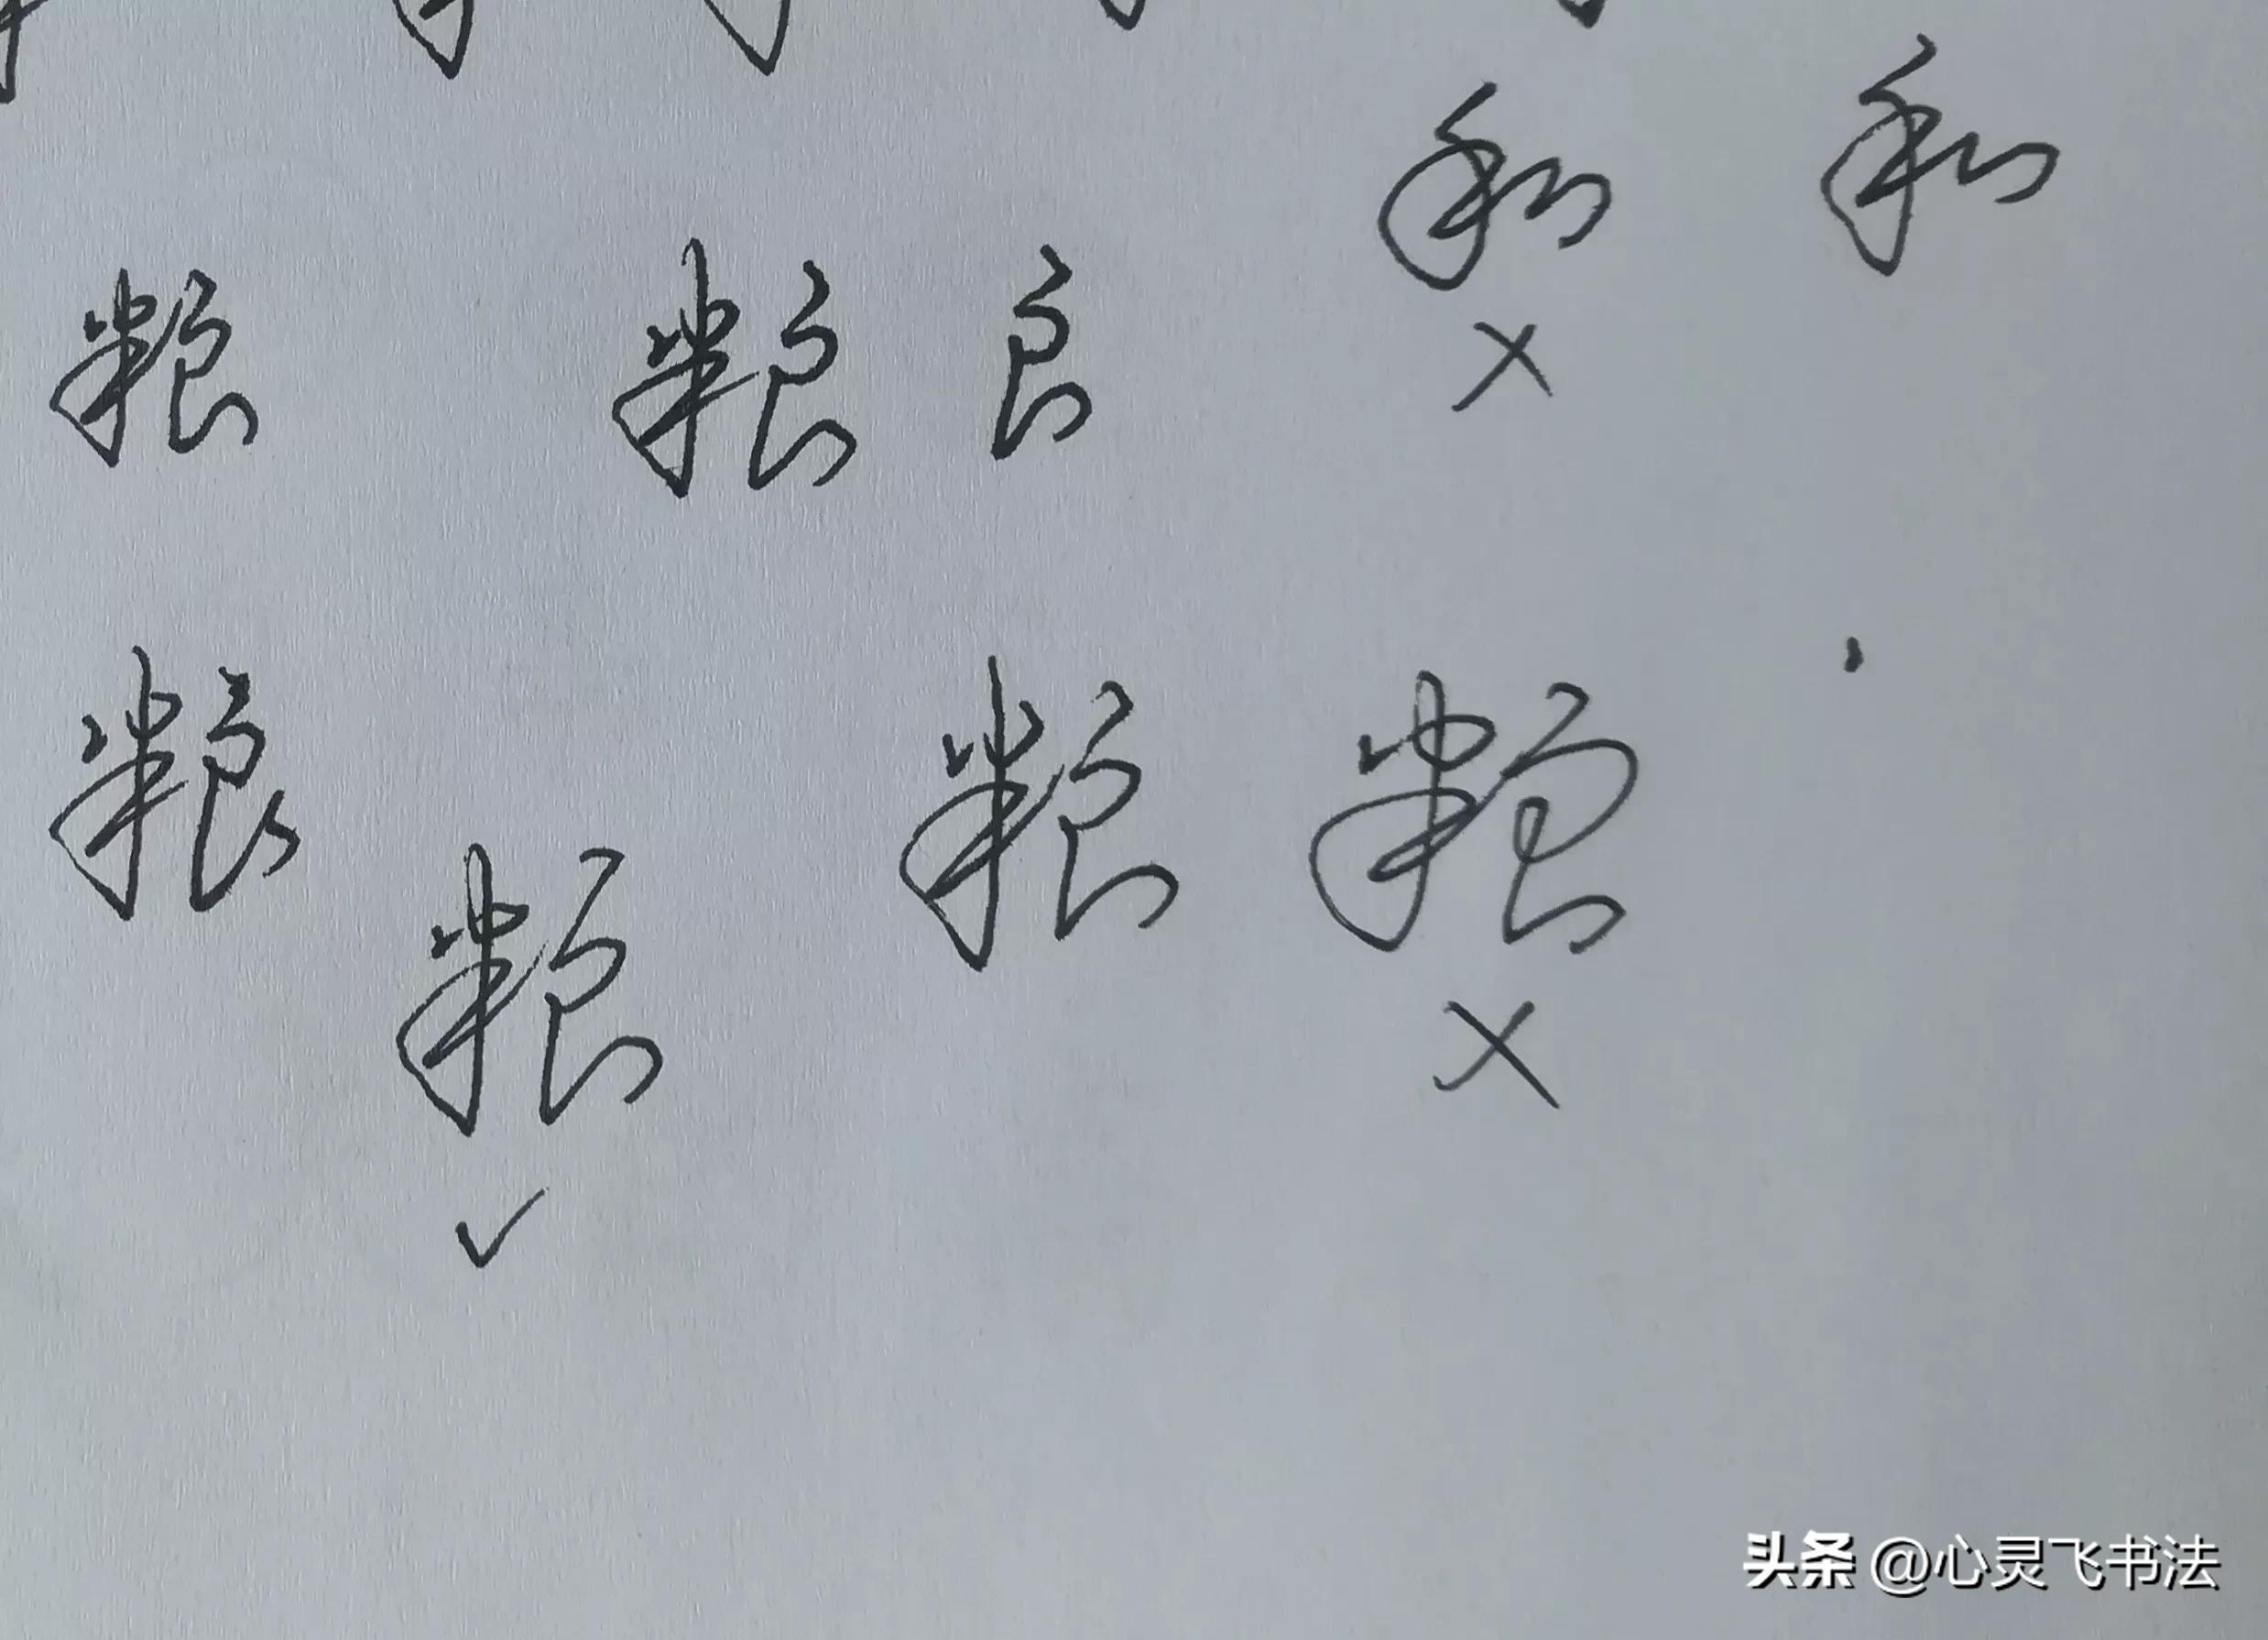 和 和
粮 粮 良
×
粮 粮 粮 粮
×
✓
头条 @心灵飞书法